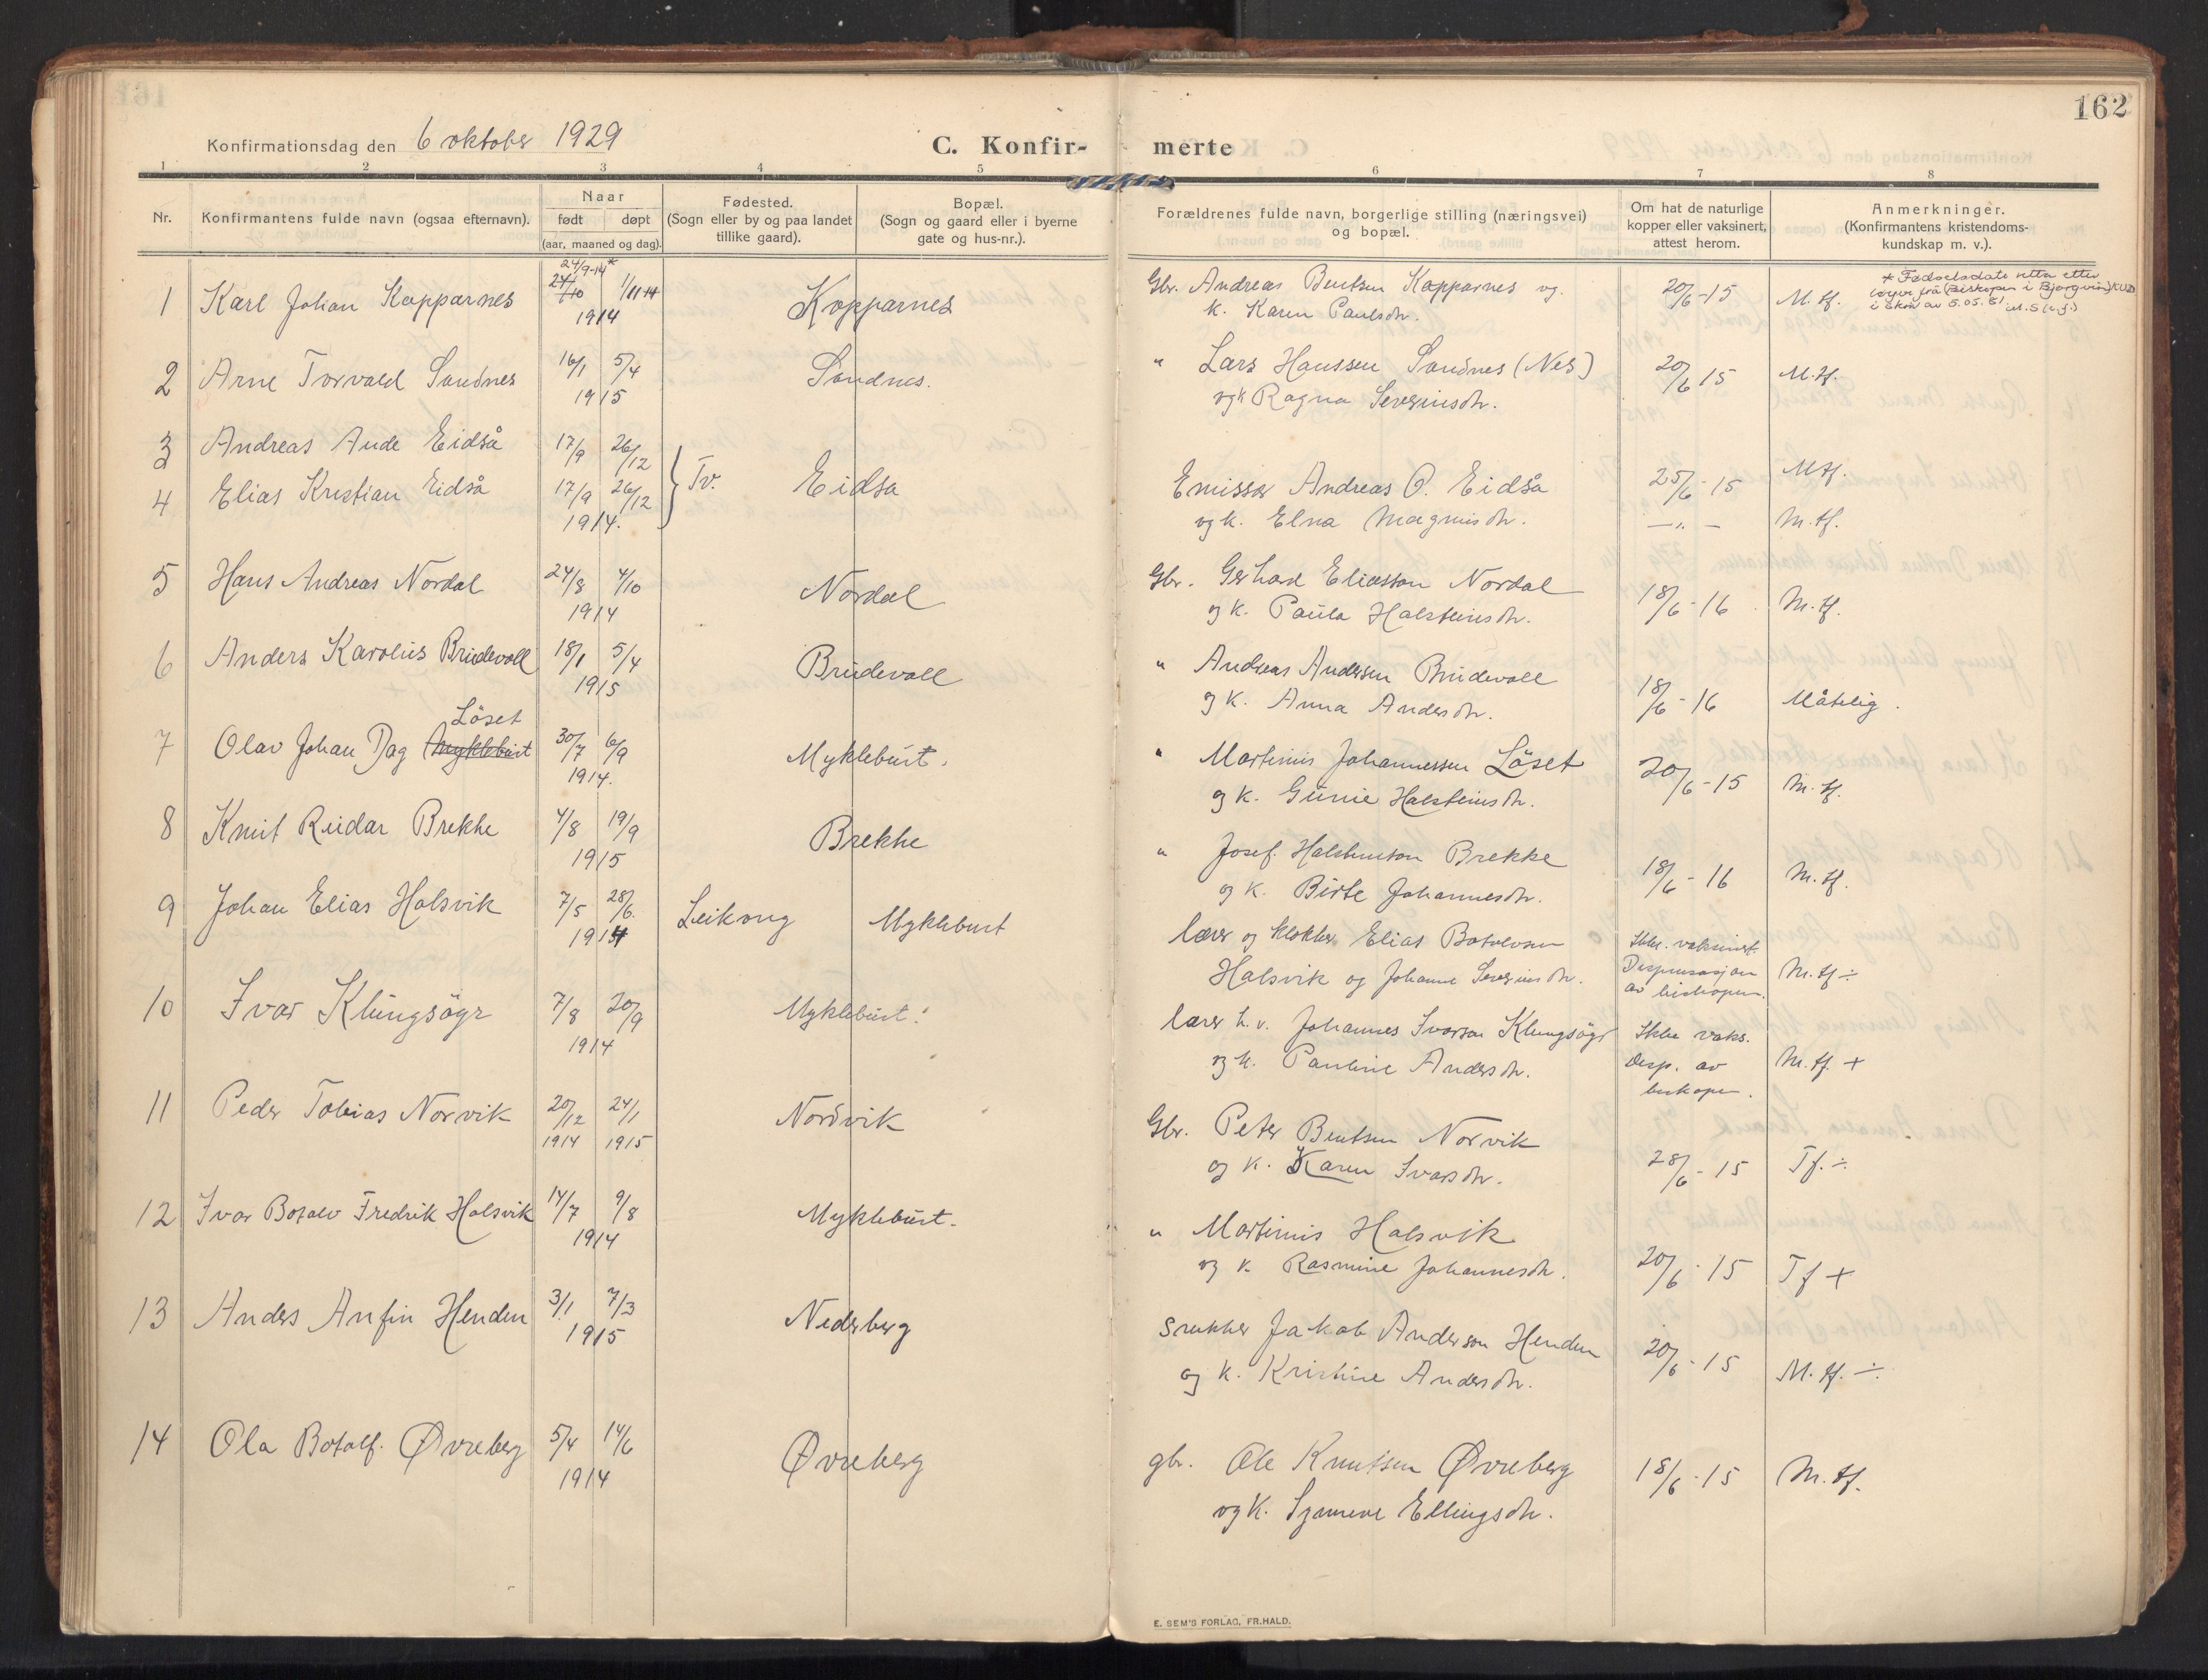 162
Konfirmationsdag den 6 oktober 1929
C. Konfir- merte
1 2 3 4 5 6 7 8
Nr.
Konfirmantens fulde navn (ogsaa efternavn).
Naar
født døpt
(aar, maaned og dag).
Fødested.
(Sogn eller by og paa landet
tillike gaard).
Bopæl.
(Sogn og gaard eller i byerne
gate og hus-nr.).
Forældrenes fulde navn, borgerlige stilling (næringsvei)
og bopæl.
Om hat de naturlige
kopper eller vaksinert,
attest herom.
Anmerkninger.
(Konfirmantens kristendoms-
kundskap m. v.).
24/9-14*
1 Karl Johan Kopparnes 24/10 1/11 14 Kopparnes Gbr. Andreas Bentsen Kopparnes og 20/6-15 M.tf.
1914 k. Karen Paulsdtr.
* Fødselsdato retta etter
brev frå (Biskopen i Bjørgvin) KUD
i skriv av 5.05.81
2 Arne Torvald Sandnes 16/1 5/4 Sandnes. " Lars Hanssen Sandnes (Nes) 20/6 15 M.tf.
1915 og k Ragna Severinsdtr.
3 Andreas Aude Eidså 17/9 26/12
4 Elias Kristian Eidså 17/9 26/12 } Tv. Eidsa Emissær Andreas O. Eidså 25/6-15 M.tf.
1914. og k. Elna Magnusdtr. —"— M.tf.
5 Hans Andreas Nordal 24/8 4/10 Nordal Gbr. Gerhard Eliasson Nordal 18/6-16 M.tf.
1914 og k. Paula Halsteinsdtr.
6 Anders Karolus Brudevoll 18/1 5/4 Brudevoll " Andreas Andersen Brudevoll 18/6-16 Måtelig.
1915 og k. Anna Andersdtr.
Löset
7 Olav Johan Dag Myklebust 30/7 6/9 Myklebust. " Martinus Johannessen Löset 20/6-15 M.tf.
1914. og k. Gunie Halsteinsdtr.
8 Knut Reidar Brekke 4/8 19/9 Brekke " Josef Halsteinson Brekke 18/6-16 M.tf.
1915 og k. Birte Johannesdtr.
9 Johan Elias Halsvik 7/5 28/6 Leikong Myklebust lærer og klokker Elias Botolvsen Ikke vaksinert.
1914 Halsvik og Johanne Severinsdtr. Dispensasjon M.tf÷
av biskopen.
10 Ivar Klungsöyr 7/8 20/9 Myklebust. lærer h.v. Johannes Ivarson Klungsöyr Ikke vaks.
1914 og k. Pauline Andersdtr. Disp. av M.tf. +
biskopen.
11 Peder Tobias Norvik 20/12 24/1 Nordvik Gbr. Peter Bentsen Norvik
1914 1915 og k. Karen Ivarsdtr. 28/6-15 Tf.÷
12 Ivar Botolv Fredrik Halsvik 14/7 9/8 Myklebust. " Martinus Halsvik
1914 og k. Rasmine Johannesdtr. 20/6-15 Tf +
13 Anders Anfin Henden 3/1 7/3 Nederberg snekker Jakob Anderson Henden 20/6-15 M.tf.÷
1915 og k. Kristine Andersdtr.
14 Ola Botolf. Øvreberg 5/4 14/6 Øvreberg gbr. Ole Knutsen Øvreberg 18/6-15 M.tf.
1914 og k. Synneve Ellingsdtr.
E. SEM'S FORLAG, FR.HALD.